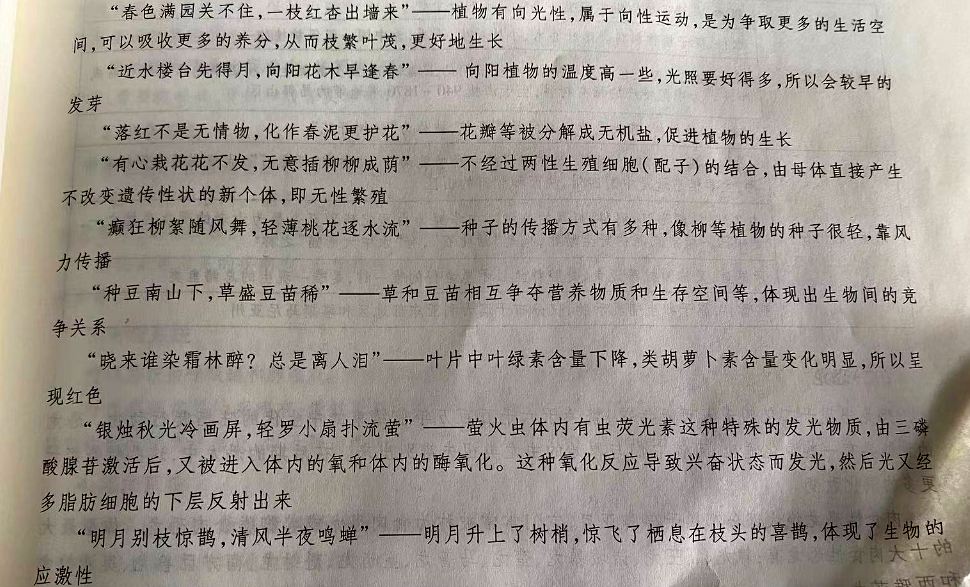 “春色满园关不住,一枝红杏出墙来”——植物有向光性,属于向性运动,是为争取更多的生活空
间,可以吸收更多的养分,从而枝繁叶茂,更好地生长
“近水楼台先得月,向阳花木早逢春”—— 向阳植物的温度高一些,光照要好得多,所以会较早的
发芽
“落红不是无情物,化作春泥更护花”——花瓣等被分解成无机盐,促进植物的生长
“有心栽花花不发,无意插柳柳成荫”——不经过两性生殖细胞(配子)的结合,由母体直接产生
不改变遗传性状的新个体,即无性繁殖
“癫狂柳絮随风舞,轻薄桃花逐水流”——种子的传播方式有多种,像柳等植物的种子很轻,靠风
力传播
“种豆南山下,草盛豆苗稀”——草和豆苗相互争夺营养物质和生存空间等,体现出生物间的竞
争关系
“晓来谁染霜林醉？总是离人泪”——叶片中叶绿素含量下降,类胡萝卜素含量变化明显,所以呈
现红色
“银烛秋光冷画屏,轻罗小扇扑流萤”——萤火虫体内有虫荧光素这种特殊的发光物质,由三磷
酸腺苷激活后,又被进入体内的氧和体内的酶氧化。这种氧化反应导致兴奋状态而发光,然后光又经
多脂肪细胞的下层反射出来
“明月别枝惊鹊,清风半夜鸣蝉”——明月升上了树梢,惊飞了栖息在枝头的喜鹊,体现了生物的
应激性